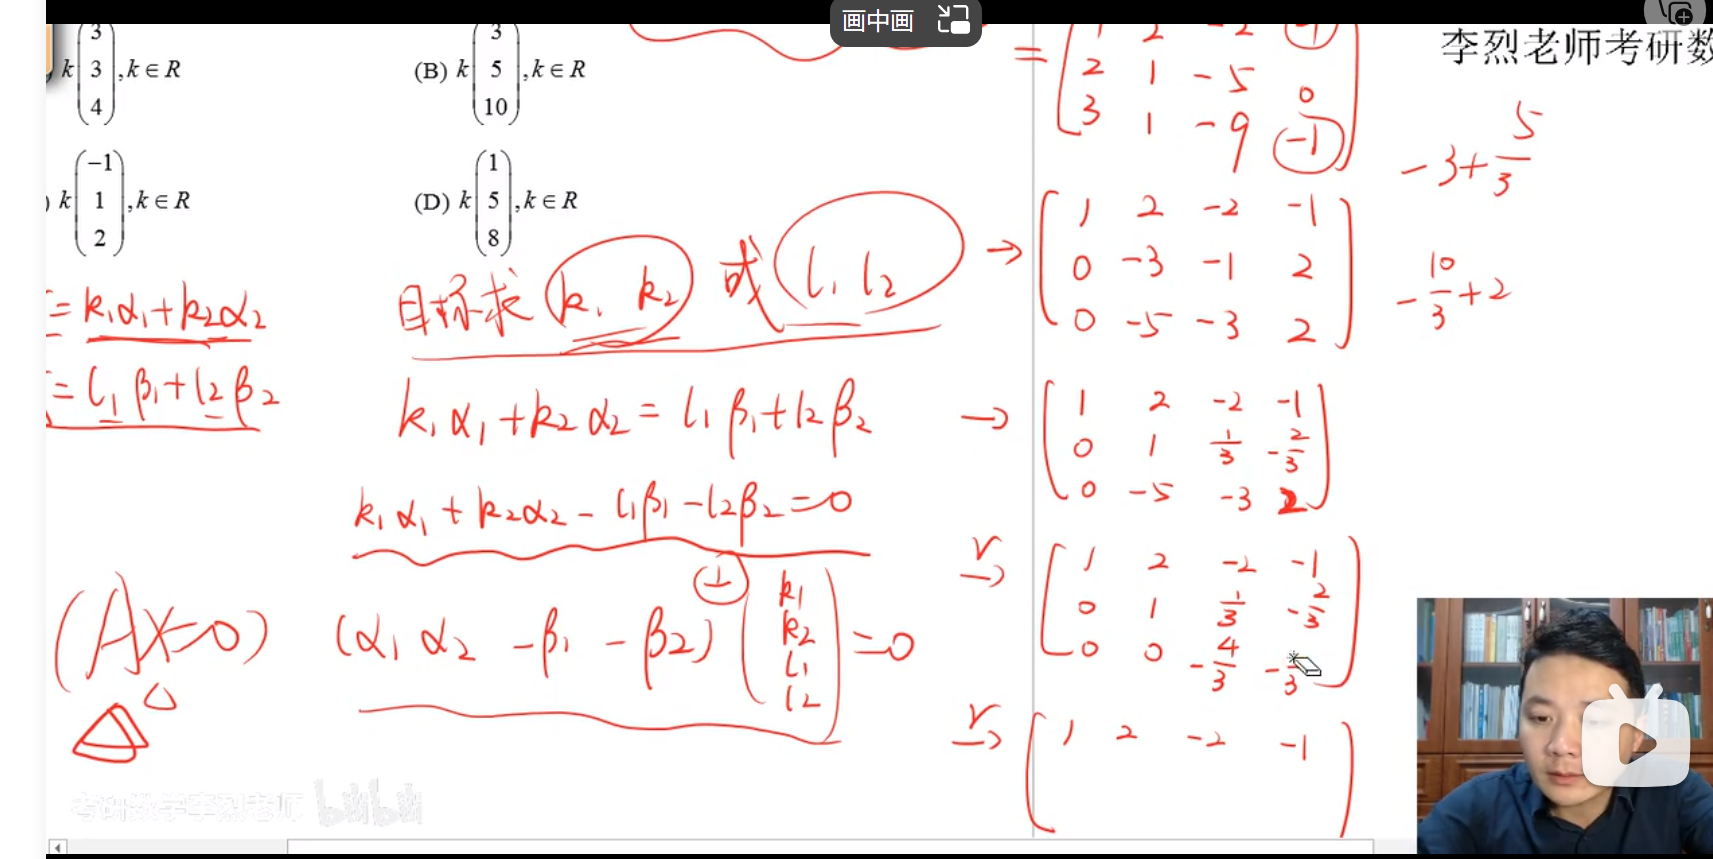 画中画
李烈老师考研数
k (3 3 4), k ∈ R
(B) k (3 5 10), k ∈ R
k (-1 1 2), k ∈ R
(D) k (1 5 8), k ∈ R
= k₁α₁+k₂α₂
= l₁β₁+l₂β₂
目标求 k₁ k₂ 或 l₁ l₂
k₁α₁+k₂α₂ = l₁β₁+l₂β₂
k₁α₁+k₂α₂-l₁β₁-l₂β₂=0
(Ax=0)
(α₁ α₂ -β₁ -β₂) (k₁ k₂ l₁ l₂) =0
=
1 2 -2 -1
2 1 -5 0
3 1 -9 -1
→
1 2 -2 -1
0 -3 -1 2
0 -5 -3 2
→
1 2 -2 -1
0 1 1/3 -2/3
0 -5 -3 2
r→
1 2 -2 -1
0 1 1/3 -2/3
0 0 -4/3 - /3
r→
1 2 -2 -1
-3+5/3
-10/3+2
考研数学李烈老师 bilibili